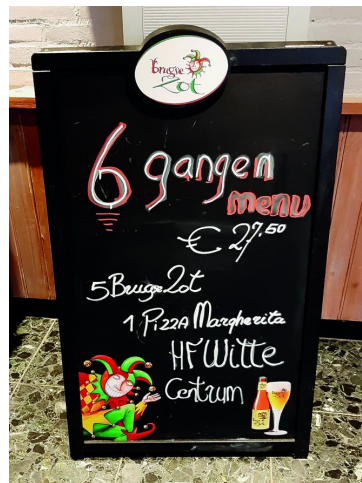 brugse
Zot
6 gangen
menu
€ 27.50
5 Brugse Zot
1 PizzA Margherita
HF Witte
Centrum